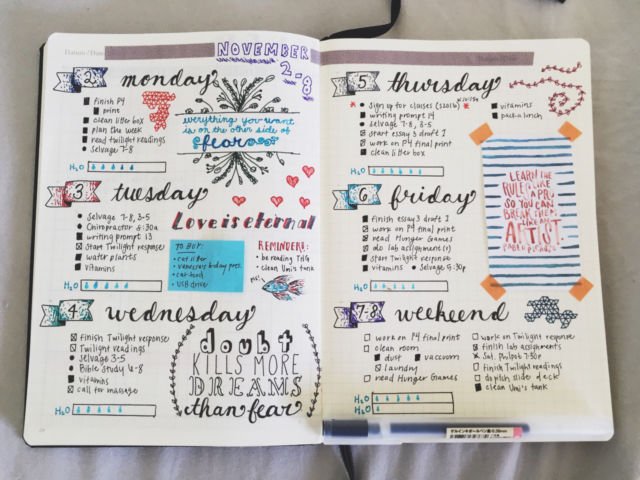 Datum / Date
NOVEMBER
2-8
2
monday
finish P4
print
clean litter box
plan the week
read twilight readings
selvage 7-8
H2O
everything you want
is on the other side of
fear
3
tuesday
Selvage 7-8, 3-5
Chiropractor 5:30a
writing prompt 13
Start Twilight response
water plants
vitamins
H2O
Love is eternal
TO BUY:
cat litter
vanessa's b-day pres.
cat food
USB drive
REMINDERS:
be reading THG
clean Umi's tank
4
wednesday
finish Twilight response
Twilight readings
Selvage 3-5
Bible Study 6-8
vitamins
call for massage
H2O
doubt
KILLS MORE
DREAMS
than fear
5
thursday
sign up for classes
writing prompt 14
selvage 7-8, 3-5
start essay 3 draft 1
work on P4 final print
clean litter box
vitamins
pack a lunch
H2O
LEARN THE
RULES LIKE
A PRO,
SO YOU CAN
BREAK THEM
LIKE AN
ARTIST.
PABLO PICASSO
6
friday
finish essay 3 draft 1
work on P4 final print
read Hunger Games
do lab assignment(s)
start Twilight response
vitamins
Selvage 5:30p
H2O
7-8
weekend
work on P4 final print
clean room
dust
vacuum
laundry
read Hunger Games
work on Twilight response
finish lab assignments
Sat. Phlpot 7:30p
finish Twilight readings
do pitch slide deck
clean Umi's tank
H2O
ゲルインキボールペン
0.38mm